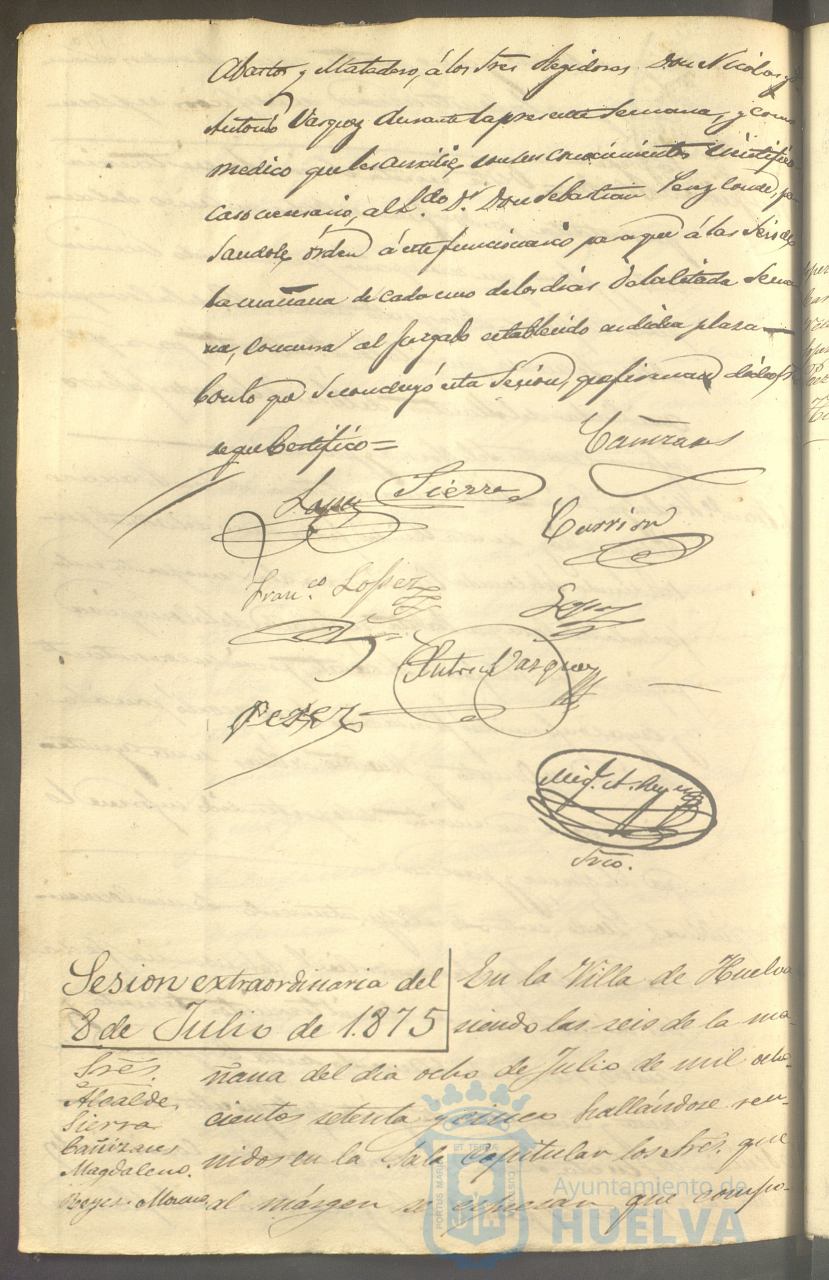 Abastos y Matadero, á los Sres Regidores Don Nicolas y
Antonio Vazquez durante la presente Semana, y como
medico que les auxilie, con sus conocimientos cientifico
caso necesario, al L.do D.r Don Sebastian Conde, pa-
sandole, órden á este funcionario para que á las Seis de
la mañana de cada uno de los dias de la citada Sema
na, concurra al Juzgado establecido en dicha plaza—
Con lo que se concluyó esta Sesion, que firman
de que Certifico=
Cañizares
Lopez Sierra
Carrion
Fran.co Lopez
Lopez
Antonio Vazquez
Perez
Mig.l A. Reyes
Srio.
Sesion extraordinaria del
8 de Julio de 1.875
En la Villa de Huelva
siendo las seis de la ma-
ñana del dia ocho de Julio de mil ocho-
cientos setenta y cinco hallándose reu-
nidos en la Sala Capitular los Sres. que
al márgen se espresan que compo-
Sres.
Alcalde
Sierra
Cañizares
Magdaleno.
Reyes Moreno
PORTUS MARIS ET TERRAE CUSTODIA
Ayuntamiento de
HUELVA